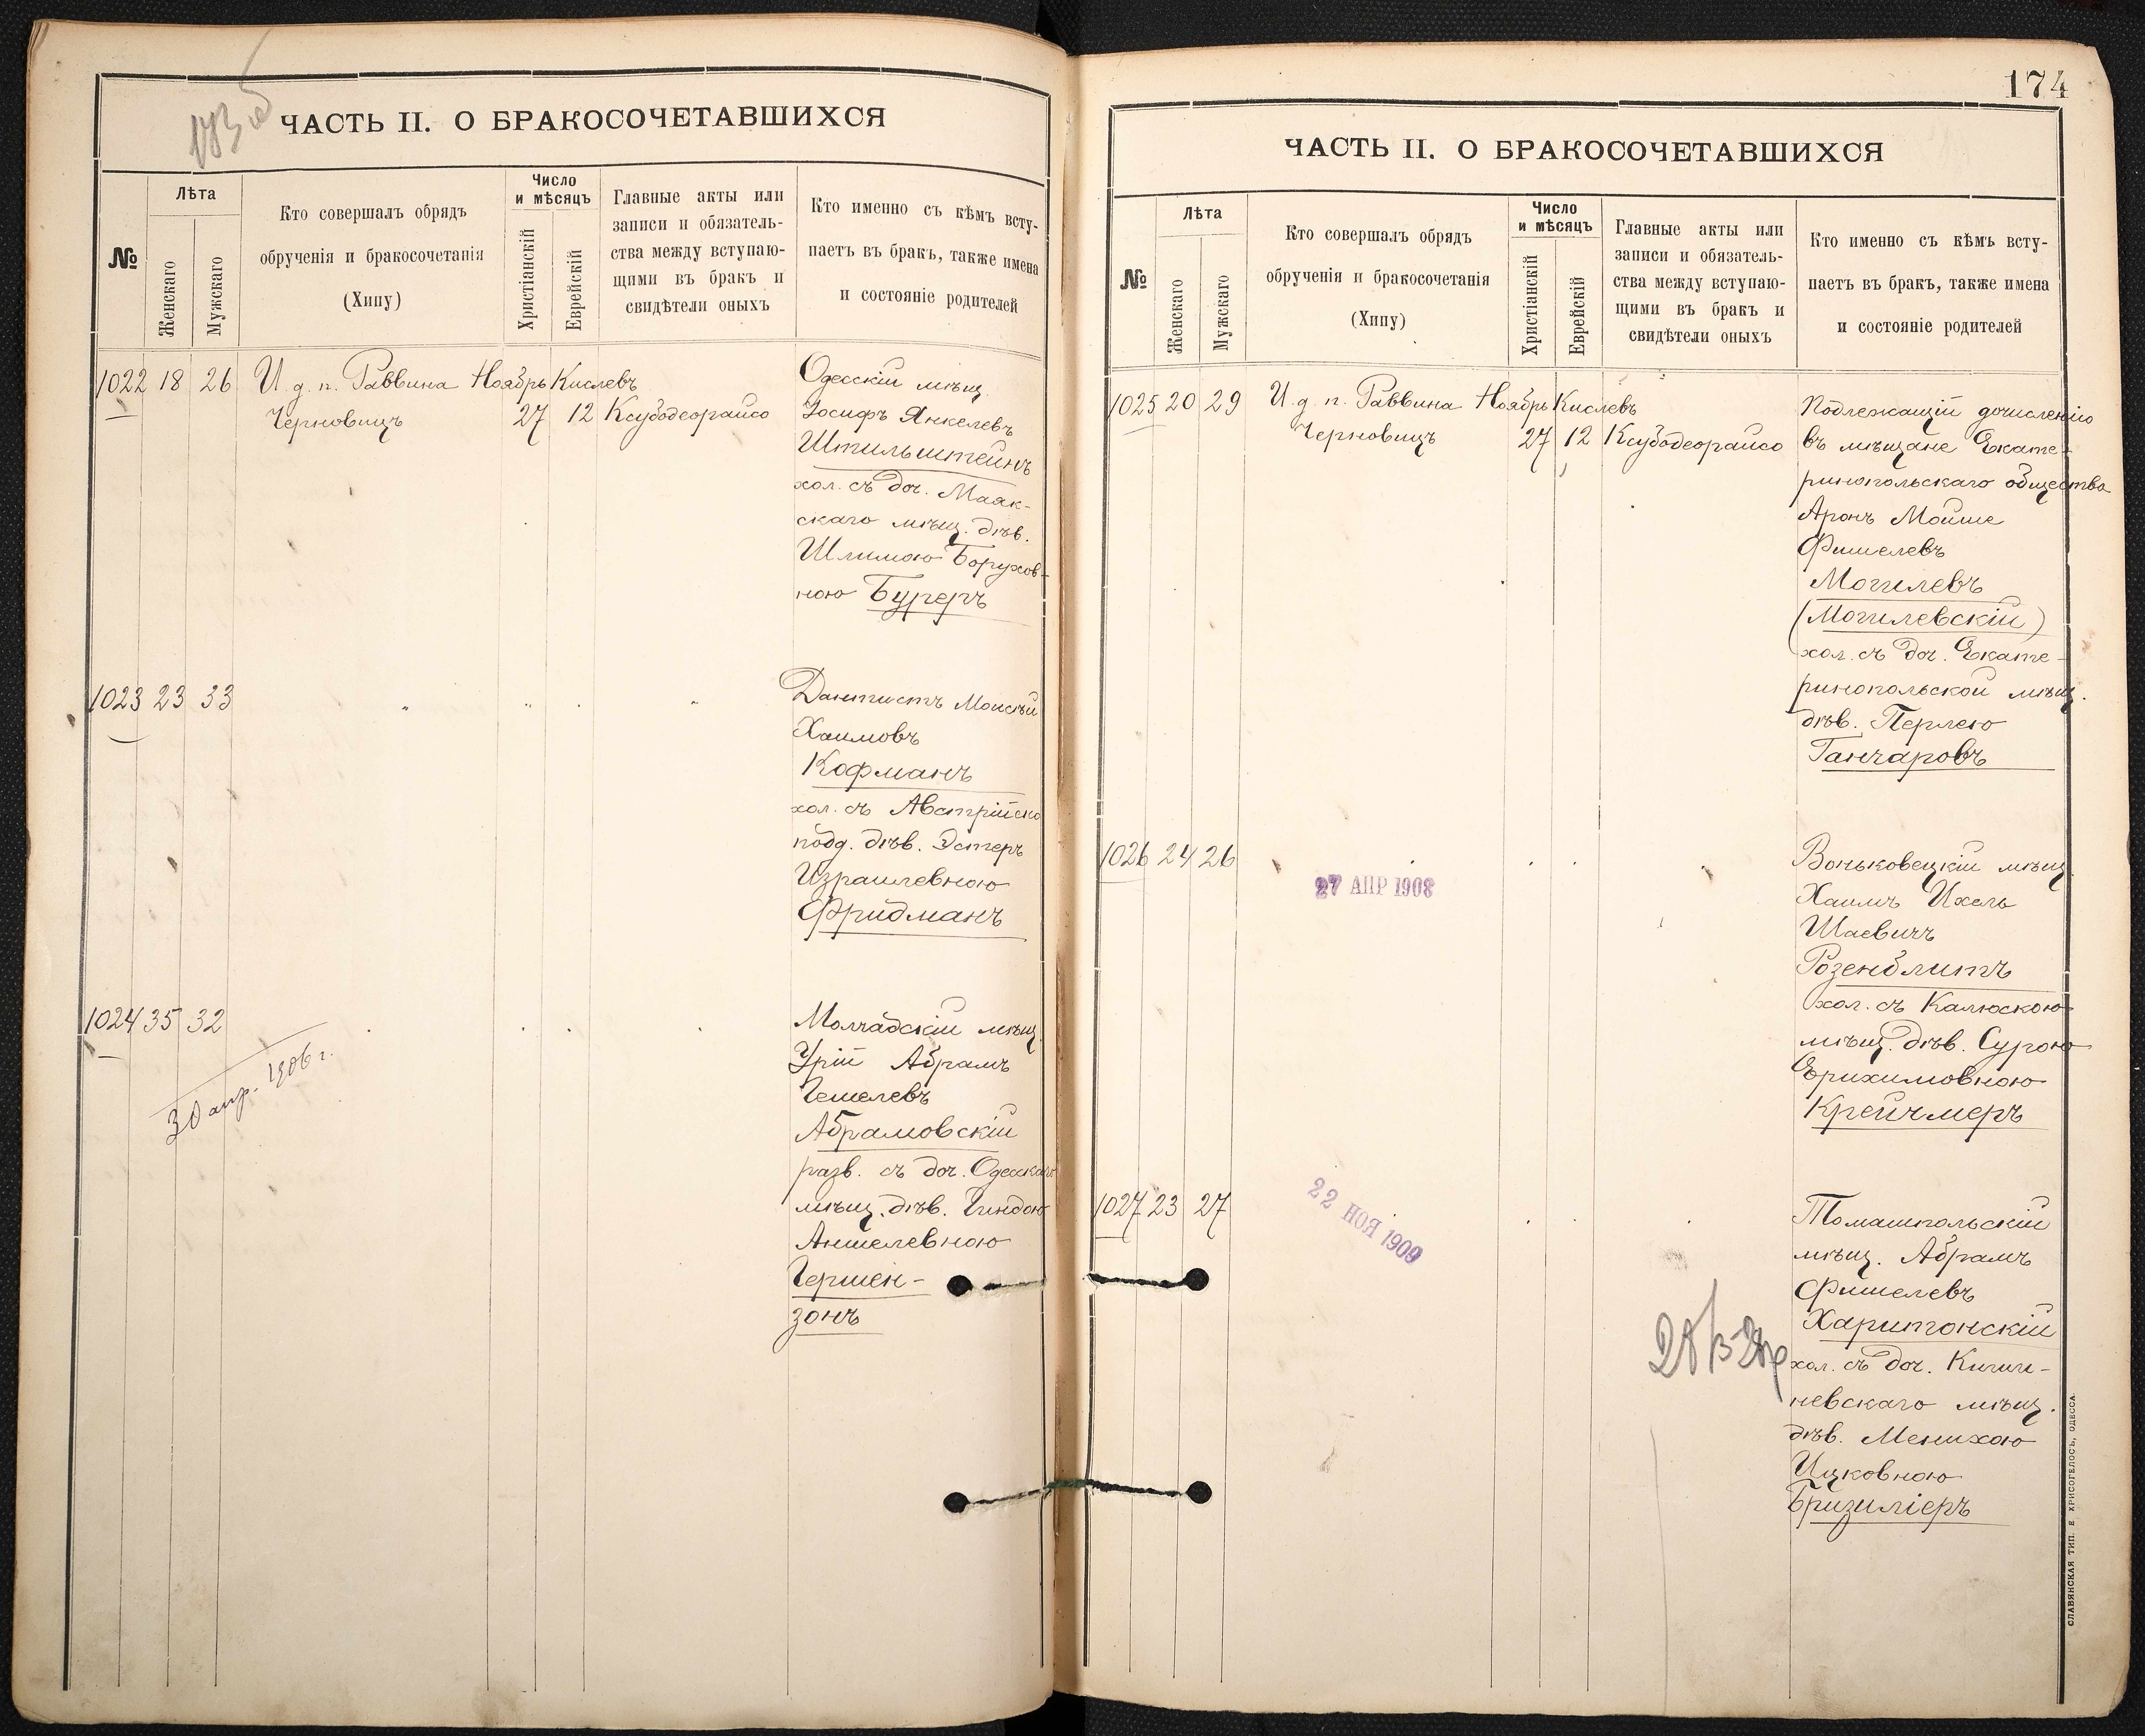 ЧАСТЬ II. О БРАКОСОЧЕТАВШИХСЯ
№
Лѣта
Женскаго
Мужскаго
Кто совершалъ обрядъ
обрученія и бракосочетанія
(Хипу)
Число
и мѣсяцъ
Христіанскій
Еврейскій
Главные акты или
записи и обязатель-
ства между вступаю-
щими въ бракъ и
свидѣтели оныхъ
Кто именно съ кѣмъ всту-
паетъ въ бракъ, также имена
и состояніе родителей
1022 18 26 И. д. п. Раввина Ноябрь Кислевъ
Черновицъ 27 12 Ксубодеорайсо
Одесскій мѣщ.
Іосифъ Янкелевъ
Штильштейнъ
хол. съ доч. Маяк-
скаго мѣщ. дѣв.
Шлимою Борухов-
ною Буреръ
1023 23 33
Дантистъ Моисѣй
Хаимовъ
Кофманъ
хол. съ Австрійско
подд. дѣв. Эстеръ
Израилевною
Фридманъ
1024 35 32
30 апр. 1906 г.
Молчадскій мѣщ.
Урій Абрамъ
Гешелевъ
Абрамовскій
разв. съ доч. Одесскаго
мѣщ. дѣв. Гиндою
Аншелевною
Гершен-
зонъ
174
ЧАСТЬ II. О БРАКОСОЧЕТАВШИХСЯ
№
Лѣта
Женскаго
Мужскаго
Кто совершалъ обрядъ
обрученія и бракосочетанія
(Хипу)
Число
и мѣсяцъ
Христіанскій
Еврейскій
Главные акты или
записи и обязатель-
ства между вступаю-
щими въ бракъ и
свидѣтели оныхъ
Кто именно съ кѣмъ всту-
паетъ въ бракъ, также имена
и состояніе родителей
1025 20 29 И. д. п. Раввина Ноябрь Кислевъ
Черновицъ 27 12 Ксубодеорайсо
Подлежащій дочисленію
въ мѣщане Екате-
ринопольскаго общества
Аронъ Мойше
Фишелевъ
Могилевъ
(Могилевскій)
хол. съ доч. Екате-
ринопольской мѣщ.
дѣв. Перлею
Ганчаровъ
1026 24 26
27 АПР 1908
Воньковецкій мѣщ.
Хаимъ Ихель
Шаевичъ
Розенблитъ
хол. съ Калюскою
мѣщ. дѣв. Сурою
Ерихимовною
Крейчмеръ
1027 23 27
22 НОЯ 1909
Томашпольскій
мѣщ. Абрамъ
Фишелевъ
Харитонскій
хол. съ доч. Киши-
невскаго мѣщ.
дѣв. Менихою
Ицковною
Бризиліеръ
СЛАВЯНСКАЯ ТИП. Е. ХРИСОГЕЛОСЪ, ОДЕССА.